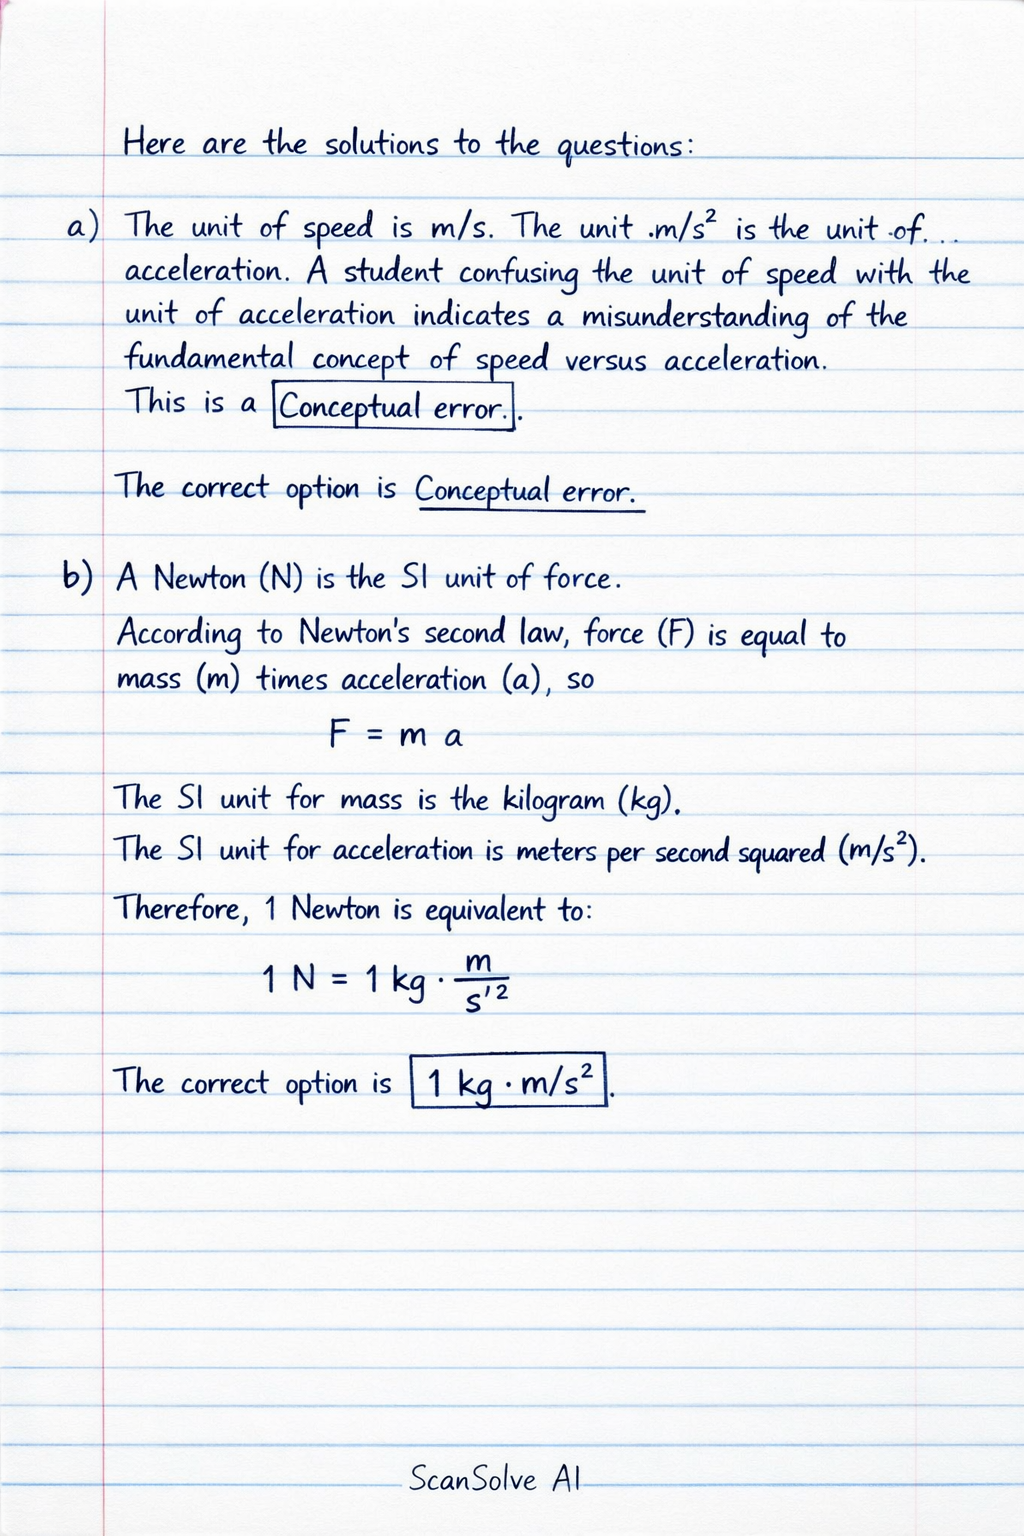 Here are the solutions to the questions:
a) The unit of speed is m/s. The unit .m/s² is the unit .of...
acceleration. A student confusing the unit of speed with the
unit of acceleration indicates a misunderstanding of the
fundamental concept of speed versus acceleration.
This is a Conceptual error..
The correct option is Conceptual error.
b) A Newton (N) is the SI unit of force.
According to Newton's second law, force (F) is equal to
mass (m) times acceleration (a), so
F = m a
The SI unit for mass is the kilogram (kg).
The SI unit for acceleration is meters per second squared (m/s²).
Therefore, 1 Newton is equivalent to:
1 N = 1 kg · m/s'²
The correct option is 1 kg · m/s².
ScanSolve AI